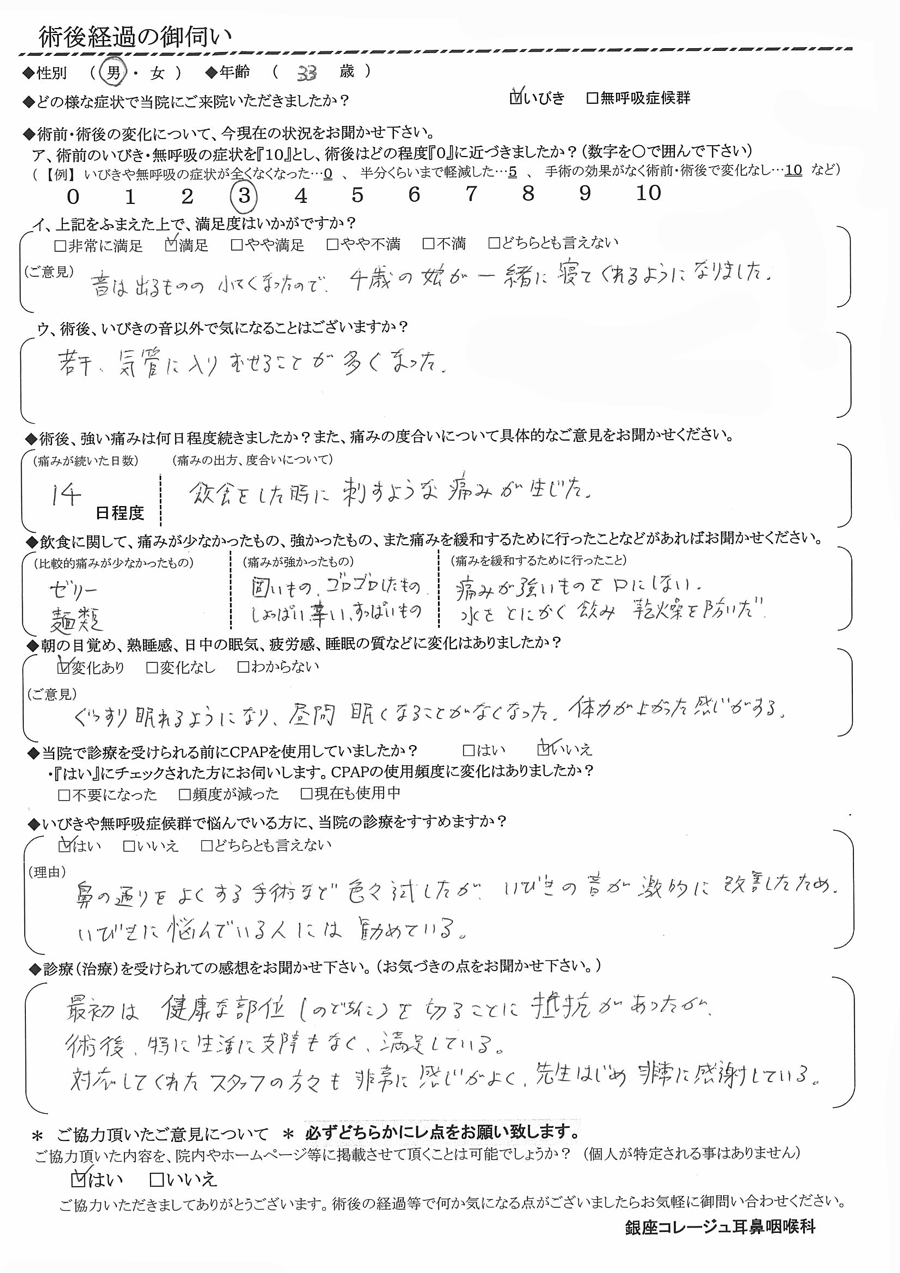 術後経過の御伺い
◆性別 (男・女) ◆年齢 ( 33 歳)
◆どの様な症状で当院にご来院いただきましたか? ☑いびき □無呼吸症候群
◆術前・術後の変化について、今現在の状況をお聞かせ下さい。
ア、術前のいびき・無呼吸の症状を『10』とし、術後はどの程度『0』に近づきましたか?(数字を○で囲んで下さい)
(【例】いびきや無呼吸の症状が全くなくなった…0 、 半分くらいまで軽減した…5 、 手術の効果がなく術前・術後で変化なし…10 など)
0 1 2 3 4 5 6 7 8 9 10
イ、上記をふまえた上で、満足度はいかがですか?
□非常に満足 ☑満足 □やや満足 □やや不満 □不満 □どちらとも言えない
(ご意見) 音は出るものの 小さくなったので、4歳の娘が一緒に寝てくれるようになりました。
ウ、術後、いびきの音以外で気になることはございますか?
若干、気管に入りむせることが多くなった。
◆術後、強い痛みは何日程度続きましたか?また、痛みの度合いについて具体的なご意見をお聞かせください。
(痛みが続いた日数) (痛みの出方、度合いについて)
14 日程度 飲食をした時に刺すような痛みが生じた。
◆飲食に関して、痛みが少なかったもの、強かったもの、また痛みを緩和するために行ったことなどがあればお聞かせください。
(比較的痛みが少なかったもの) (痛みが強かったもの) (痛みを緩和するために行ったこと)
ゼリー 固いもの、ゴロゴロしたもの 痛みが強いものを口にしない。
麺類 しょっぱい、辛い、すっぱいもの 水をとにかく飲み 乾燥を防いだ
◆朝の目覚め、熟睡感、日中の眠気、疲労感、睡眠の質などに変化はありましたか?
☑変化あり □変化なし □わからない
(ご意見)
ぐっすり眠れるようになり、昼間 眠くなることがなくなった。体力が上がった感じがする。
◆当院で診療を受けられる前にCPAPを使用していましたか? □はい ☑いいえ
・『はい』にチェックされた方にお伺いします。CPAPの使用頻度に変化はありましたか?
□不要になった □頻度が減った □現在も使用中
◆いびきや無呼吸症候群で悩んでいる方に、当院の診療をすすめますか?
☑はい □いいえ □どちらとも言えない
(理由)
鼻の通りをよくする手術など色々試したが、いびきの音が激的に改善したため。
いびきに悩んでいる人には勧めている。
◆診療(治療)を受けられての感想をお聞かせ下さい。(お気づきの点をお聞かせ下さい。)
最初は 健康な部位(のどちんこ)を切ることに抵抗があったが、
術後、特に生活に支障もなく、満足している。
対応してくれたスタッフの方々も非常に感じがよく、先生はじめ非常に感謝している。
* ご協力頂いたご意見について * 必ずどちらかにレ点をお願い致します。
ご協力頂いた内容を、院内やホームページ等に掲載させて頂くことは可能でしょうか? (個人が特定される事はありません)
☑はい □いいえ
ご協力いただきましてありがとうございます。術後の経過等で何か気になる点がございましたらお気軽に御問い合わせください。
銀座コレージュ耳鼻咽喉科